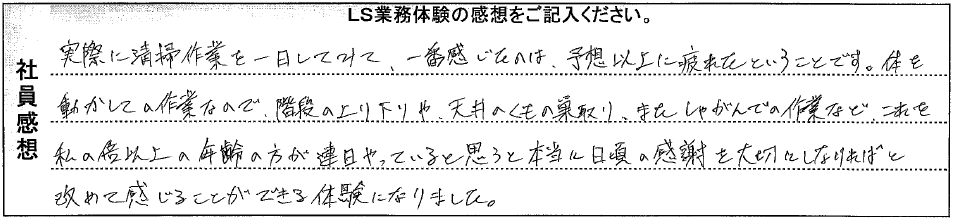 LS業務体験の感想をご記入ください。
社員感想
実際に清掃作業を一日してみて、一番感じたのは、予想以上に疲れたということです。体を
動かしての作業なので、階段の上り下りや、天井のくもの巣取り、またしゃがんでの作業など、これを
私の倍以上の年齢の方が連日やっていると思うと本当に日頃の感謝を大切にしなければと
改めて感じることができる体験になりました。